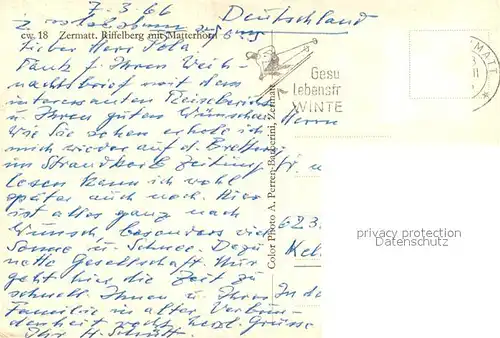 7.3.66
Deutschland
cw. 18 Zermatt. Riffelberg mit Matterhorn
Lieber Herr Pola
Dank f. Ihren Weih-
nachtsbrief mit dem
interessanten Reisebericht
u Ihren guten Wünschen
Wie Sie sehen erhole ich
mich wieder auf d. Brettern
im Strandkorb Zeitung
lesen kann ich wohl
später auch noch. Hier
ist alles ganz nach
Wunsch besonders viel
Sonne u. Schnee. Dazu
nette Gesellschaft. Nur
geht hier die Zeit zu
schnell. Ihnen u Ihrer
Familie in alter Verbun-
denheit recht herzl. Grüsse
Ihr H.
Color Photo A. Perren-Barberini, Zermatt
Gesu
Lebensfr
WINTE
Herrn
623
Kel
In de
privacy protection
Datenschutz